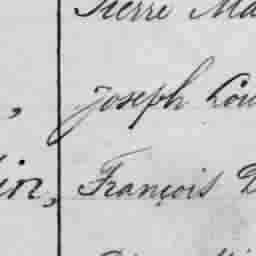 Pierre Ma
, Joseph Lou
in, François D